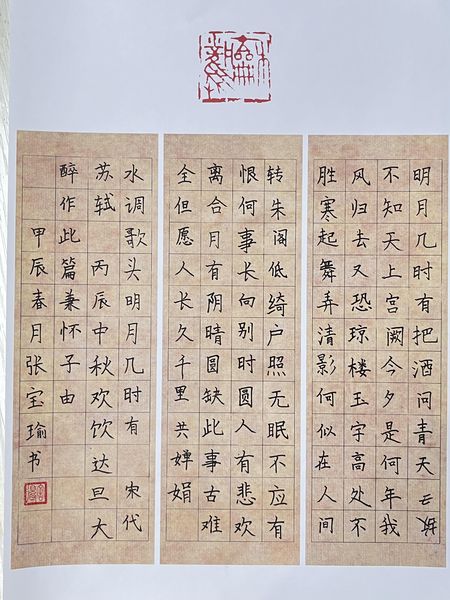 明月几时有把酒问青天
不知天上宫阙今夕是何年我
风归去又恐琼楼玉宇高处不
胜寒起舞弄清影何似在人间
转朱阁低绮户照无眠不应有
恨何事长向别时圆人有悲欢
离合月有阴晴圆缺此事古难
全但愿人长久千里共婵娟
水调歌头明月几时有 宋代
苏轼 丙辰中秋欢饮达旦大
醉作此篇兼怀子由
甲辰春月张宝瑜书